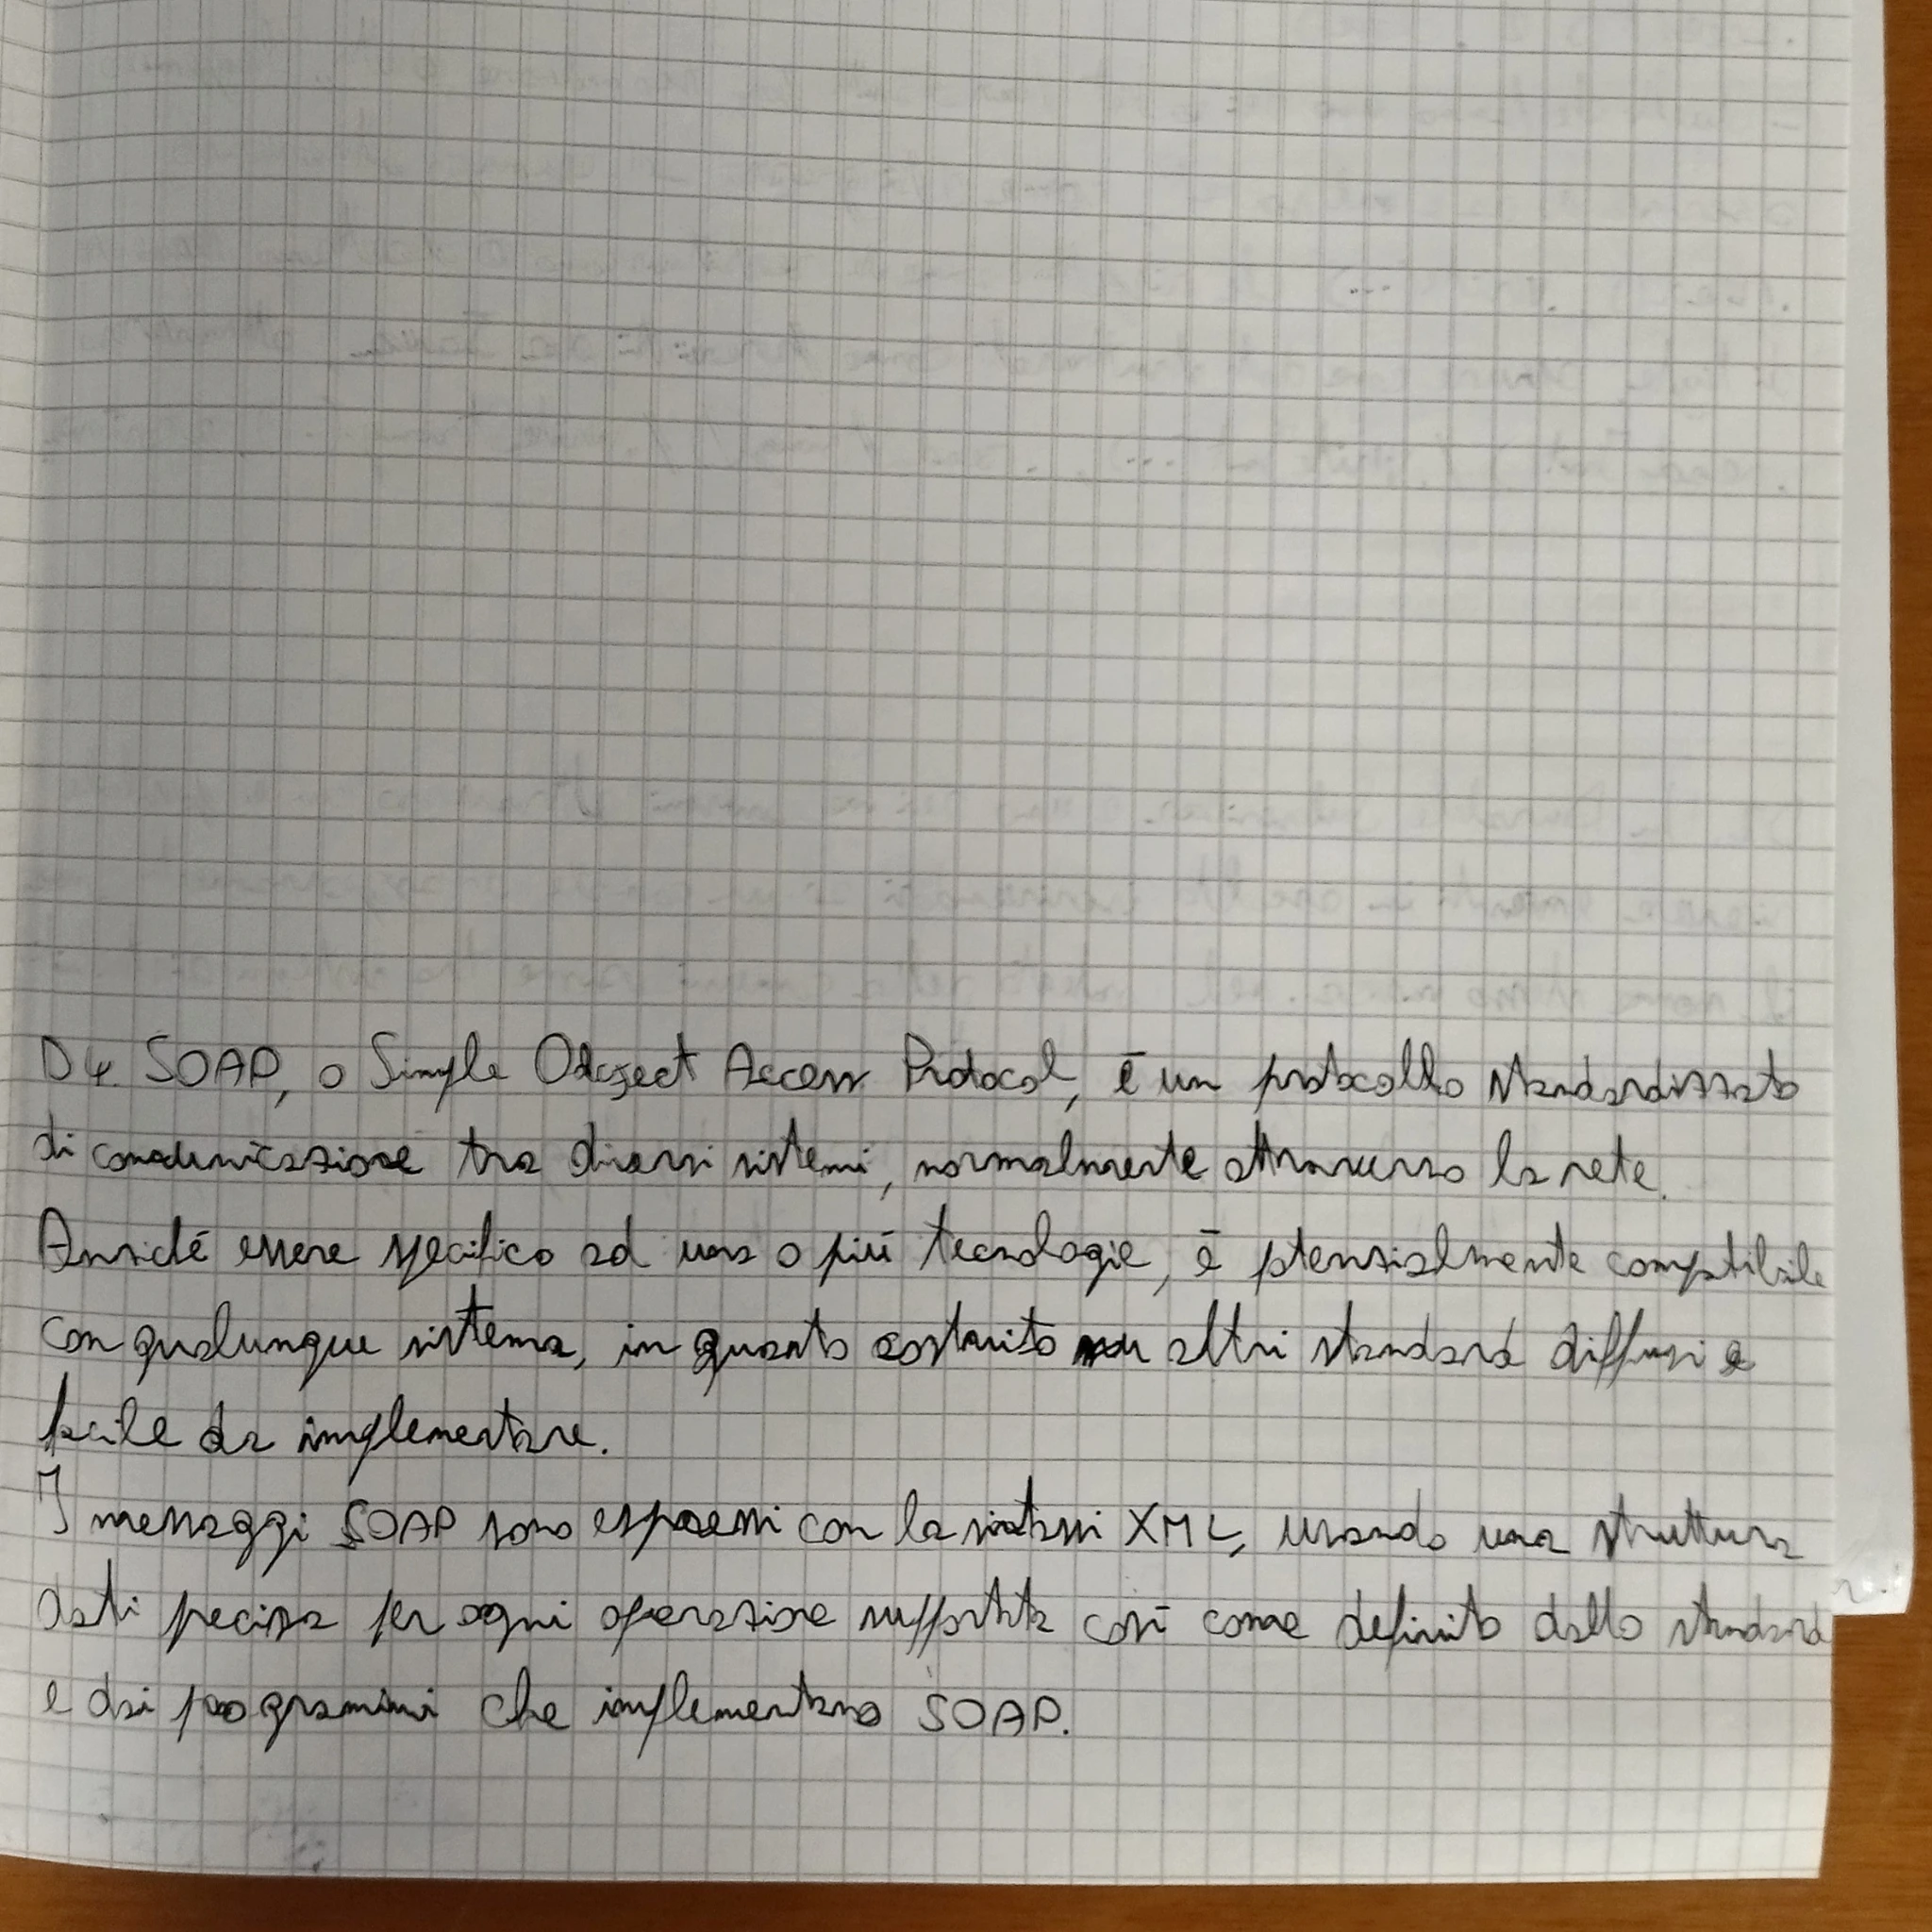 D4. SOAP, o Simple Object Access Protocol, è un protocollo standardizzato
di comunicazione tra diversi sistemi, normalmente attraverso la rete.
Anziché essere specifico ad una o più tecnologie, è ptenzialmente comptibile
con qualunque sistema, in quanto costruito su altri standard diffusi e
facile da implementare.
I messaggi SOAP sono espressi con la sintassi XML, usando una struttura
dati precisa per ogni operazione supportata così come definito dallo standard
e dai programmi che implementano SOAP.